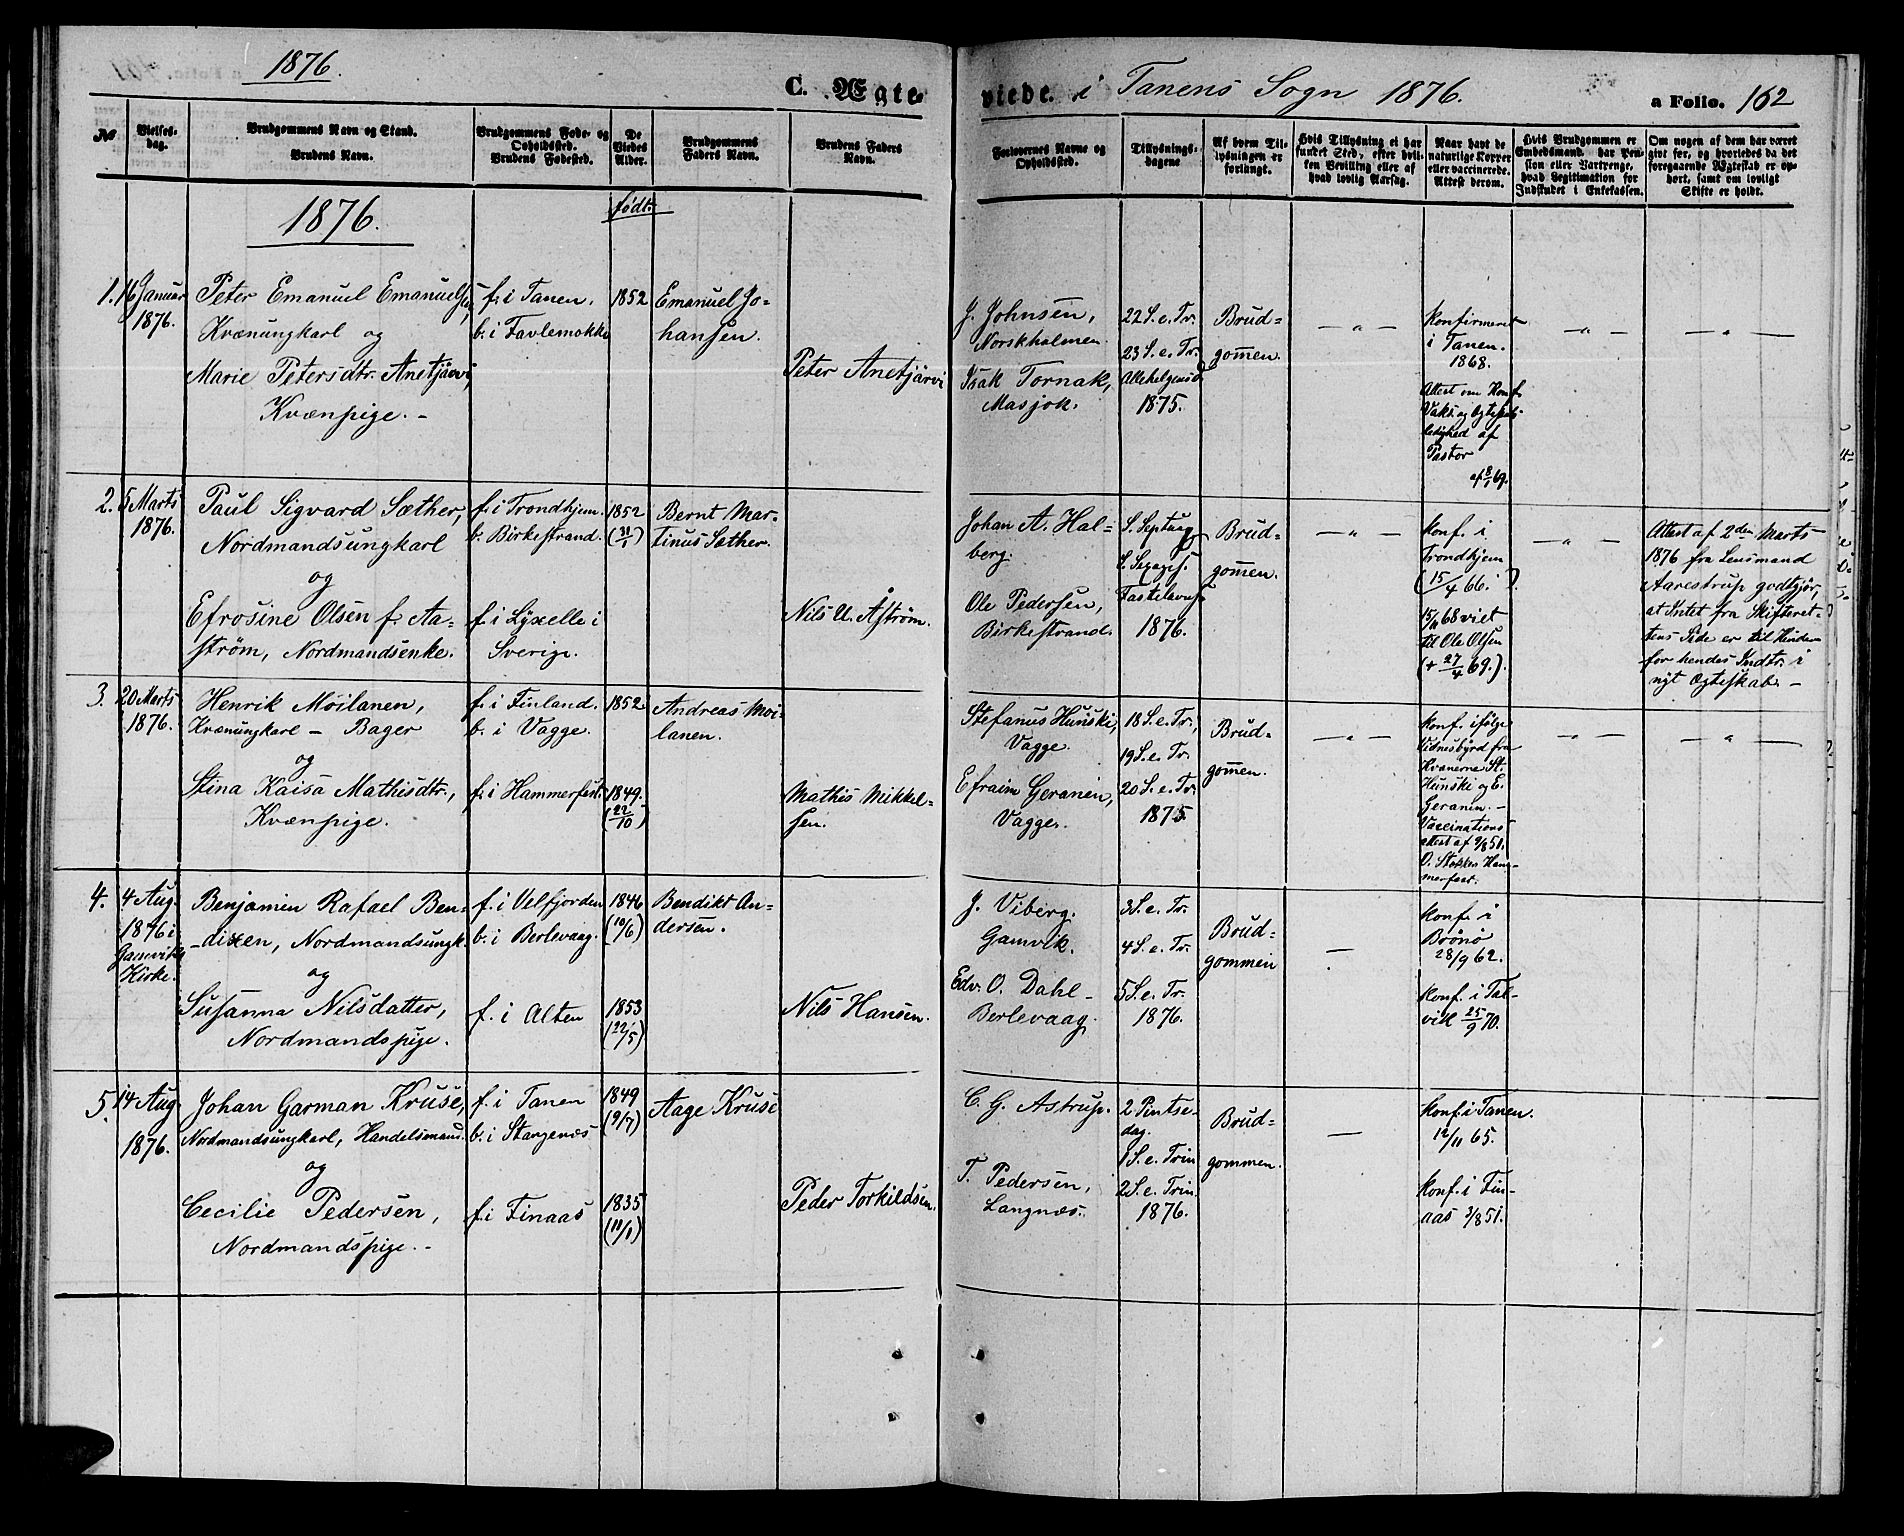 1876.
C. Ægteviede. i Tanens Sogn 1876.
a Folio. 162
№
Vielsesdag.
Brudgommens Navn og Stand.
Brudens Navn.
Brudgommens Føde- og Opholdssted.
Brudens Fødested.
De Viedes Alder.
Brudgommens Faders Navn.
Brudens Faders Navn.
Forlovernes Navne og Opholdssted.
Tillysningsdagene
Af hvem Tillysningen er forlangt.
Hvis Tillysning ei har fundet Sted, efter hvilken Bevilling eller af hvad lovlig Aarsag.
Naar havt de naturlige Kopper eller vaccinerede. Attest derom.
Hvis Brudgommen er Embedsmand, har Pension eller Vartpenge, hvad Legitimation for Indskudet i Enkekassen.
Om nogen af dem har været gift før, og hvorledes da det foregaaende Ægteskab er ophørt, samt om lovligt Skifte er holdt.
1876.
født.
1. 16 Januar
1876.
Peter Emanuel Emanuelsen,
Kvænungkarl og
Marie Petersdtr. Anetjärvi,
Kvænpige. -
f. i Tanen.
b. i Favlemokke
1852
Emanuel Jo-
hansen.
Peter Anetjärvi
J. Johnsen,
Norskholmen.
Isak Tornak,
Masjok.
22 S. e. Tr.
23 S. e. Tr.
Allehelgensd.
1875.
Brud=
gomen.
— " —
konfirmeret
i Tanen.
1868.
Attest om Konf.
Vaks. og
af
Pastor
af 8/1 69.
— " —
— " —
2. 5 Marts
1876.
Paul Sigvard Sæther,
Nordmandsungkarl
og
Efrosine Olsen f. Aa=
strøm, Nordmandsenke.
f. i Trondhjem.
b. Birkestrand.
f. i Lyxelle i
Sverige.
1852
(31/1)
Bernt Mar-
tinus Sæther.
Nils U. Åström.
Johan A. Hal=
berg.
Ole Pedersen,
Birkestrand.
S. Septuag
S. Sexages.
Fastelavns
1876.
Brud=
gomen.
— " —
Konf. i
Trondhjem
(15/4 66.)
15/11 68 viet
til Ole Olsen
(+ 27/4 69.).
— " —
Attest af 2den Marts
1876 fra Lensmand
Aarestrup godtgjør,
at Intet fra Skifteret-
tens Side er til Hinder
for hendes Indtr. i
nyt Ægteskab. -
3. 20 Marts
1876.
Henrik Möilanen,
Kvænungkarl - Bager
og
Stina Kaisa Mathisdtr.,
Kvænpige.
f. i Finland.
b. i Vagge.
f. i Hammerfest.
1852.
1849.
(22/10)
Andreas Möi-
lanen.
Mathis Mikkel=
sen.
Stefanus Hunski,
Vagge.
Efraim Geranen,
Vagge.
18 S. e. Tr.
19 S. e. Tr.
20 S. e. Tr.
1875.
Brud=
gomen.
— " —
Konf. ifølge
Vidnesbyrd fra
Kvænerne St.
Hunski og E.
Geranen. -
Vaccinations
attest af 9/8 51.
O. Stokke Ham-
merfest.
— " —
— " —
4. 4 Aug.
1876 i
Gamviks
Kirke.
Benjamin Rafael Ben-
-dixen, Nordmandsungk.
og
Susanna Nilsdatter,
Nordmandspige.
f. i Velfjorden
b. i Berlevaag.
f. i Alten
1846
(10/6)
1853
(22/5)
Bendikt An=
dersen.
Nils Hansen.
J. Viberg.
Gamvik.
Edv. O. Dahl -
Berlevaag.
3 S. e. Tr.
4 S. e. Tr.
5 S. e. Tr.
1876.
Brud-
gommen
—
Konf. i
Brönö
28/9 62.
Konf. i Tal-
vik 25/9 70.
5. 14 Aug.
1876.
Johan Garman Kruse,
Nordmandsungkarl, Handelsmand.
og
Cecilie Pedersen,
Nordmandspige. -
f. i Tanen
b. i Stangenæs
f. i Finaas
1849
(9/7)
1835
(11/1)
Aage Kruse
Peder Torkildsen.
C. G. Astrup.
T. Pedersen,
Langnæs.
2 Pintse-
dag.
1 S. e. Trin
2 S. e. Trin.
1876.
Brud=
gommen.
—
Konf. i Tanen.
12/11 65.
Konf. i Fin-
aas 3/8 51.